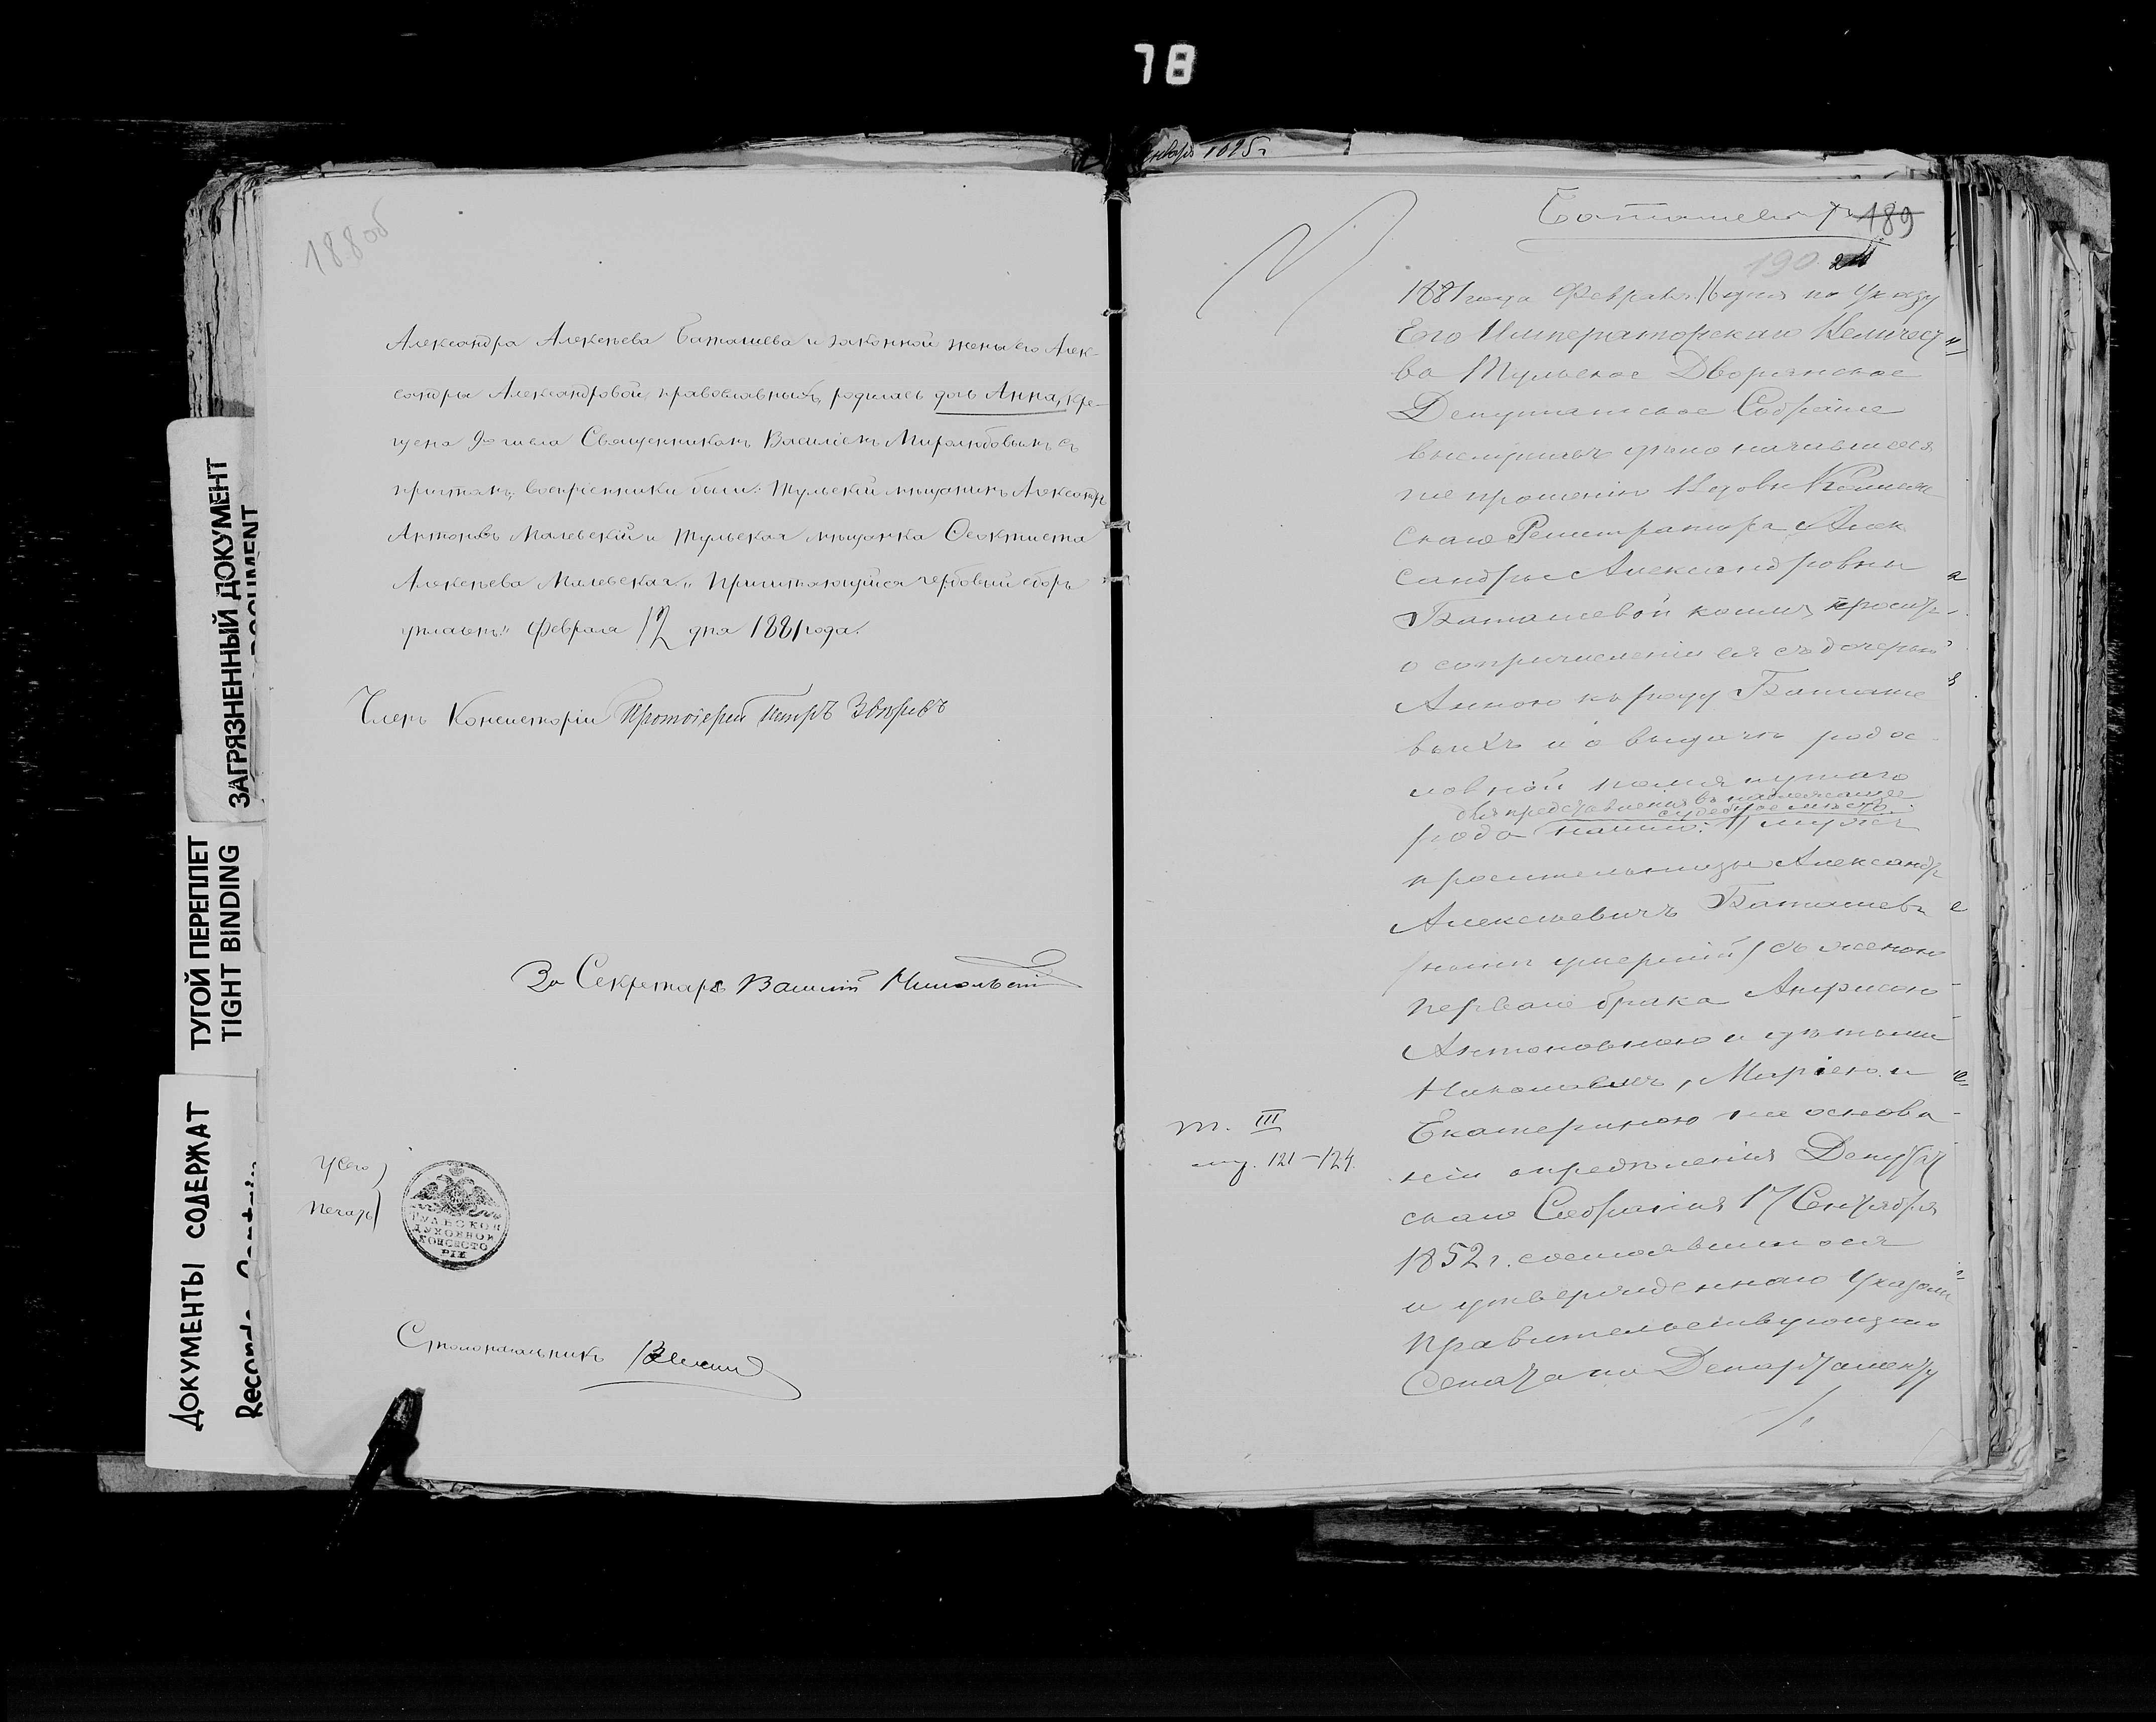 78
188об
Александра Алексѣева Баташева и законной жены его Алек-
сандры Александровой, православныхъ, родилась дочь Анна, кре-
щена 9го числа Священникомъ Василіемъ Миролюбовымъ съ
причтомъ; воспріемники были: Тульскій мѣщанинъ Александръ
Антоновъ Малевскій и Тульская мѣщанка Ѳеоктиста
Алексѣева Малевская." Причитающійся гербовый сборъ
уплаченъ." Февраля 12 дня 1881 года.
Членъ Консисторіи Протоіерей Петръ
За Секретаря Василій
У сего
печать
ТУЛЬСКОЙ
ДУХОВНОЙ
КОНСИСТО
РІИ
Столоначальникъ
ДОКУМЕНТЫ СОДЕРЖАТ
ТУГОЙ ПЕРЕПЛЕТ
TIGHT BINDING
ЗАГРЯЗНЕННЫЙ ДОКУМЕНТ
DOCUMENT
Records
189
190
1881 года Февраля 16 дня по Указу
Его Императорскаго Величест
ва Тульское Дворянское
Депутатское Собраніе
выслушавъ дѣло начавшееся
по прошенію Вдовы Коллеж
скаго Регистратора Алек
сандры Александровны
Баташевой коимъ проситъ
о сопричисленіи ея съ дочерью
Анною къ роду Баташе
выхъ и о выдачѣ родос
ловной помянутаго
для представленія въ надлежащее
судебное мѣсто.
рода нашли: 1) мужъ
просительницы Александръ
Алексѣевичъ Баташевъ
(нынѣ умершій) съ женою
перваго брака
Антоновною и дѣтьми
Николаемъ, Маріею и
Екатериною на основа
ніи опредѣленія Депутат
скаго Собранія 17 Сентября
1852 г. состоявшагося
и утвержденнаго Указомъ
Правительствующаго
Сената по Департаменту
т. III
стр. 121-124.